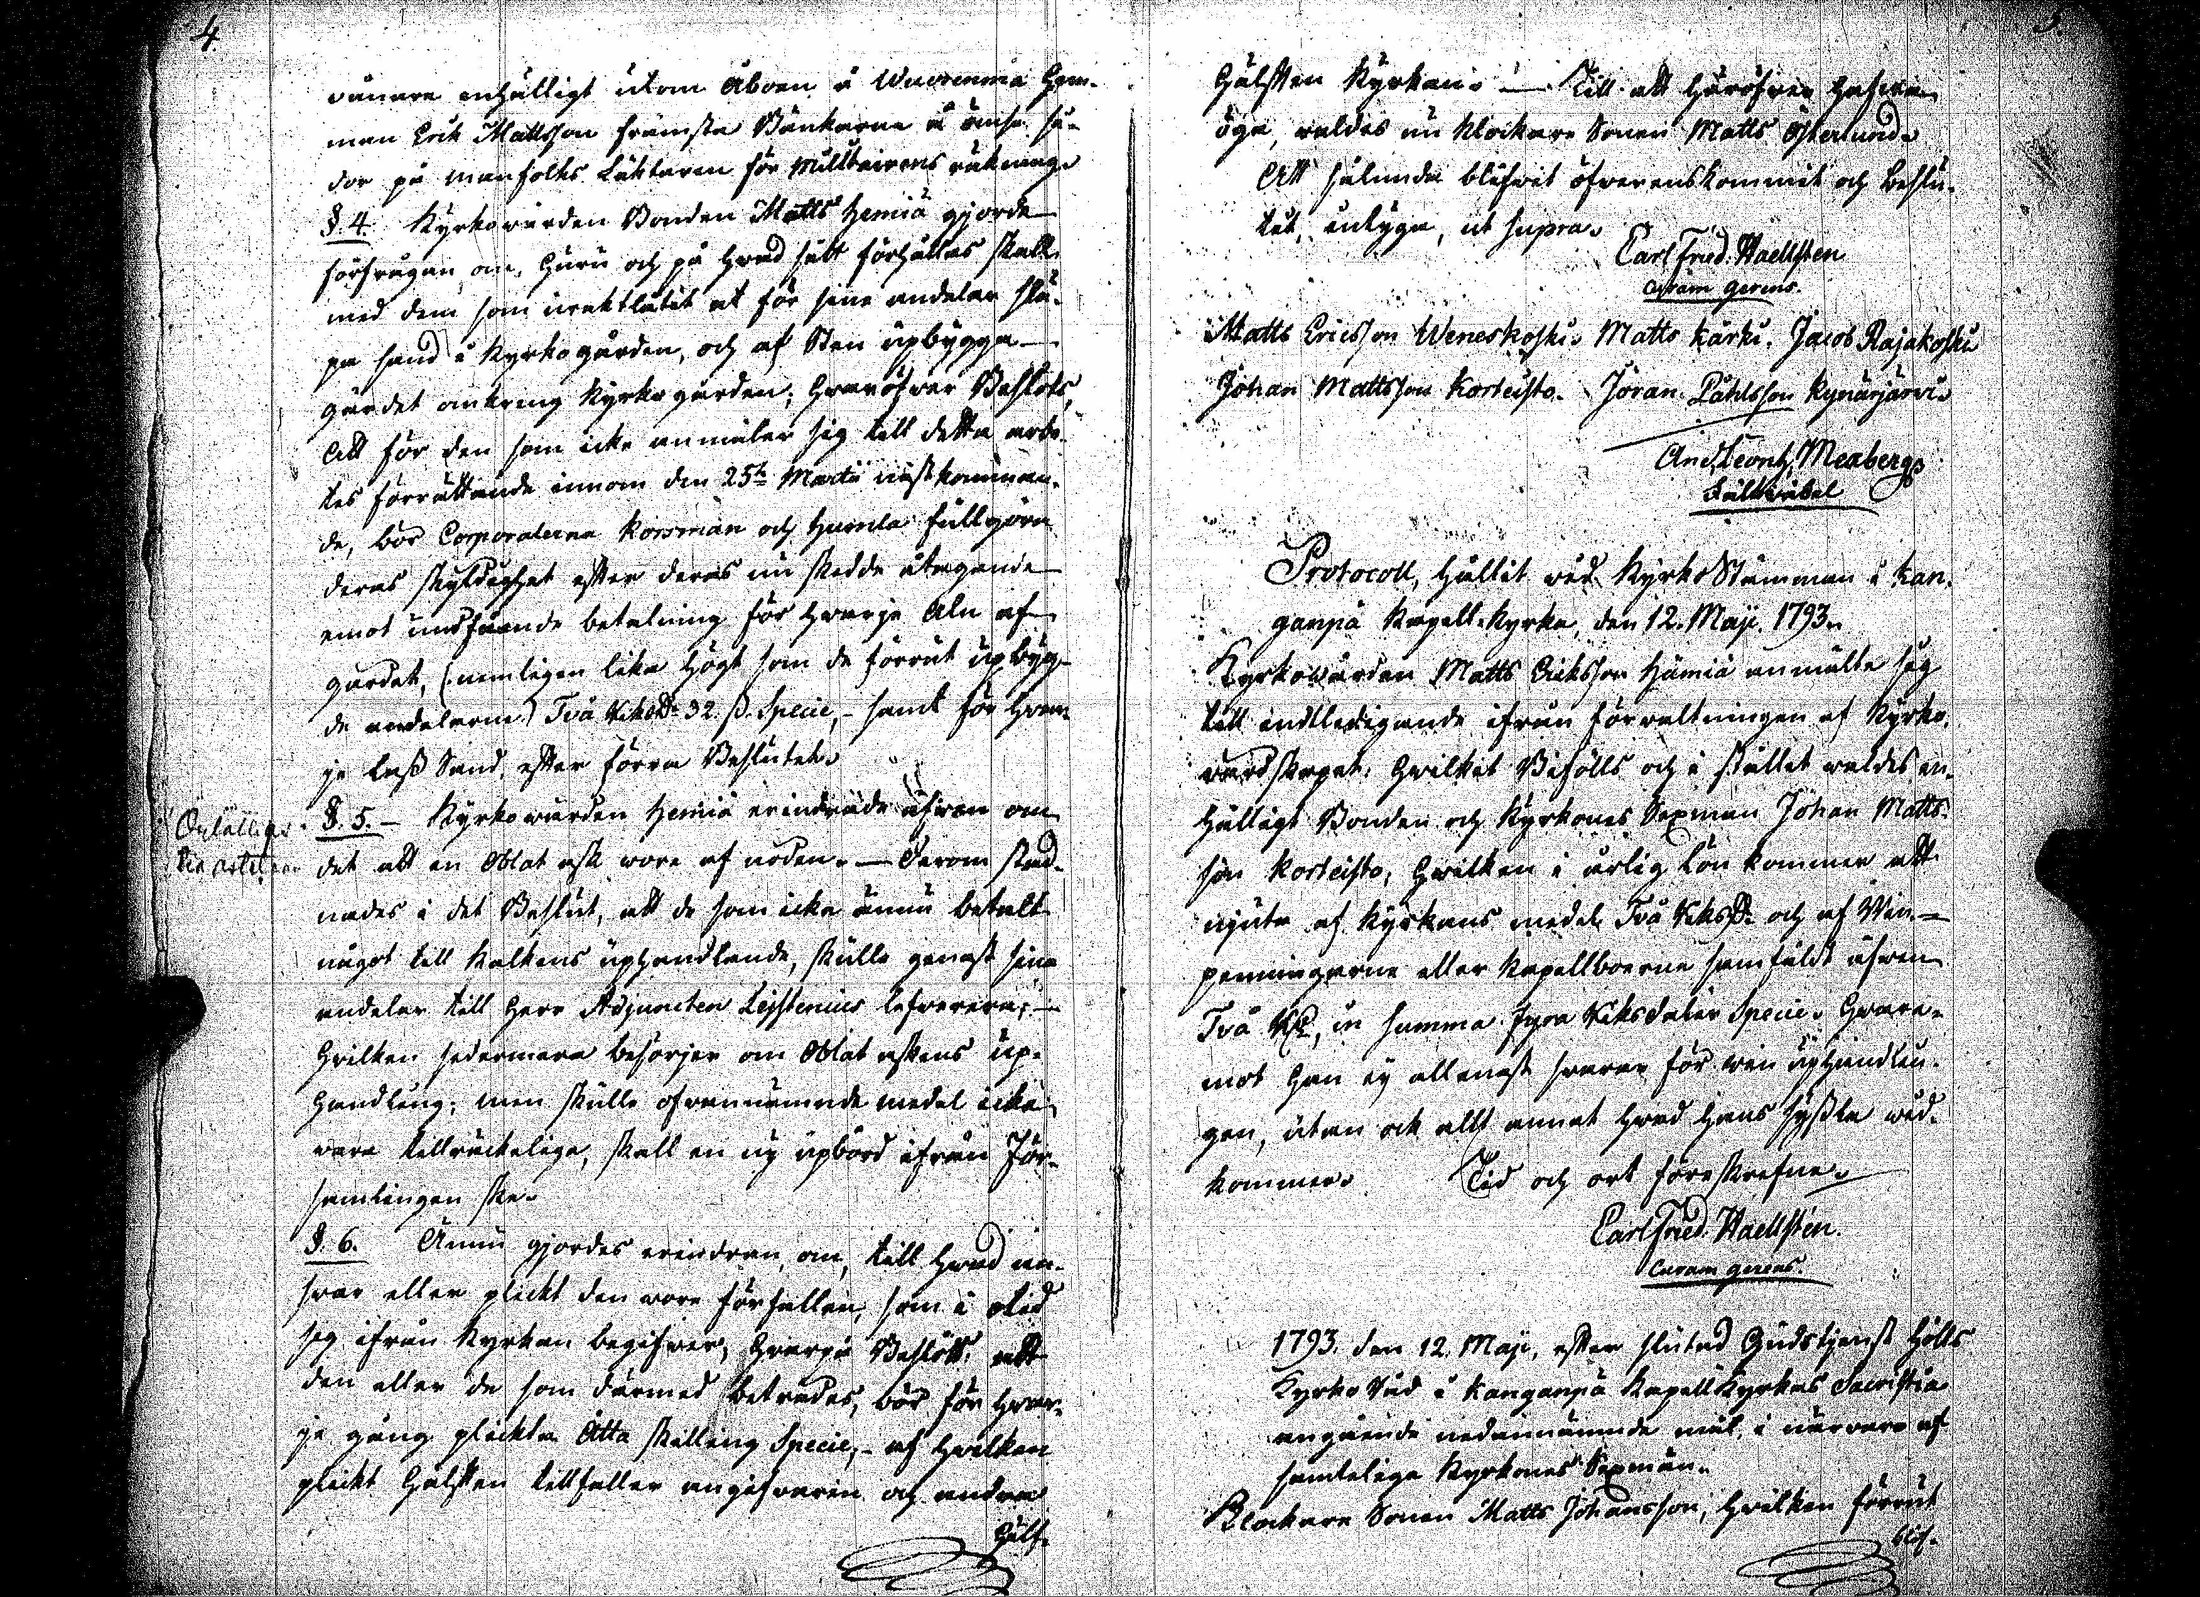 4
varare enhälligt utom Åboen å Wuorenmä Her-
man Erik Mattsson främsta Bänkarne å ömse si-
dor på manfolks Läktaren för Militairens räkning.
§. 4. Kyrkowärden Bonden Matts Hemiä gjorde
förfrågan, om, huru och på hwad sätt förhållas skall
med dem som uraktlåtit at för sina andelar slä-
pa sand å Kyrkogården, och af Sten upbygga
gärdet omkring Kyrkogården; hwaröfwer Beslöts,
Att för den som icke anmäler sig till detta arbe-
tes förrättande innom den 25te Martii nästkomman-
de, bör Corporalerna Korsman och Humla fullgöra
deras skyldighet efter deras nu skedda åtagande
emot undfående betalning för hwarje Aln af
gärdet, (nemligen lika högt som de förrut upbyg-
de andelarne) Två Riksd. 32 ß. Specie, - samt för hwar-
je lass Sand, efter förra Beslutet.
§. 5. - Kyrkowärden Hemiä erindrade äfwen om
det att en Oblat ask wore af nöden. - Derom stad-
nades i det Beslut, att de som icke ännu betalt
något till Kalkens uphandlande, skulle genast sina
andelar till Herr Adjuncten Leistenius lefwerera; -
Hwilken sedermera besörjer om Oblat askens up-
handling; men skulle ofwannämnde medel icke
vara tillräckeliga, skall en ny upbörd ifrån För-
samlingen ske.
§. 6. Ännu gjordes erindran, om, till hwad an-
swar eller plikt den wore förfallen, som i otid
sig ifrån Kyrkan begifwer; Hwarpå Beslöts, att
den eller de som därmed beträdes, bör för hwar-
je gång plickta Åtta Skilling Specie, - af hwilken
plickt Hälften tillfaller angifwaren och andra
Hälf-
5.
Hälften Kyrkan. - Till att häröfwer hafwa
öga, waldes nu Klockare Sonen Matts Österlund.
Att sålunda blifwit öfwerenskommit och beslu-
tet, intygar, ut supra.
Carl Fried. Haellsten
curam gerens.
Matts Ericsson Weneskoski. Matts Kärki. Jacob Rajakoski
Johan Mattsson Korteisto. Jöran Påhlsson Kynärjärvi.
And. Leont. Mexberg
Fältwäbel
Protocoll, hållit wid KyrkoStämman i Kan-
ganpä Kapell-Kyrka, den 12. Maji. 1793.
Kyrkowärden Matts Eriksson Hämiä anmälte sig
till entledigande ifrån förwaltningen af Kyrko-
wärdskapet, hwilket Biföls och i stället waldes en-
hälligt Bonden och Kyrkones Sexman Johan Matts-
son Korteisto, Hwilken i årlig lön kommer att
njuta af Kyrkans medel Två Riksd. och af Win-
penningarne eller Kapellboerne samfäldt äfwen
Två Rd, in summa Fyra Riksdaler Specie. Hwara-
mot han ej allenast swarar för win uphandlin-
gen, utan ock allt annat hwad hans syssla wid-
kommer. Tid och ort föreskrefne.
Carl Fried. Haellstén.
Curam gerens.
1793. den 12. Maji, efter slutad Gudstjenst hölts
KyrkoRåd i Kanganpä KapellKyrkas Sacristia
angående nedannämnde mål, i närvaro af
samtelige Kyrkones Sexmän.
Klockare Sonen Matts Johansson, hwilken förrut
blif-